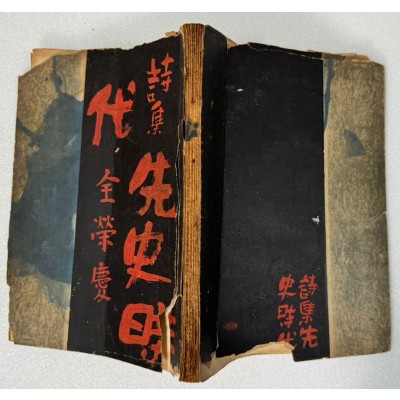 詩集
先史時
代
全榮慶
詩集先
史時代